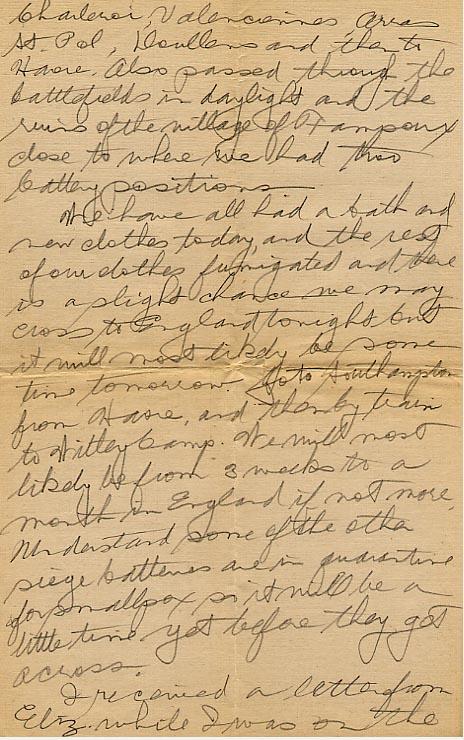 Charleroi, Valenciennes, Arras
St. Pol, Doullens and then to
Havre. Also passed through the
battlefields in daylight and the
ruins of the village of Fampoux
close to where we had two
battery positions.
We have all had a bath and
new clothes today, and the rest
of our clothes fumigated and there
is a slight chance we may
cross to England tonight but
it will most likely be some
time tomorrow. Go to Southampton
from Havre, and then by train
to Witley Camp. We will most
likely be from 3 weeks to a
month in England if not more.
Understand some of the other
siege batteries are in quarantine
for smallpox so it will be a
little time yet before they get
across.
I received a letter from
Eliz. while I was on the